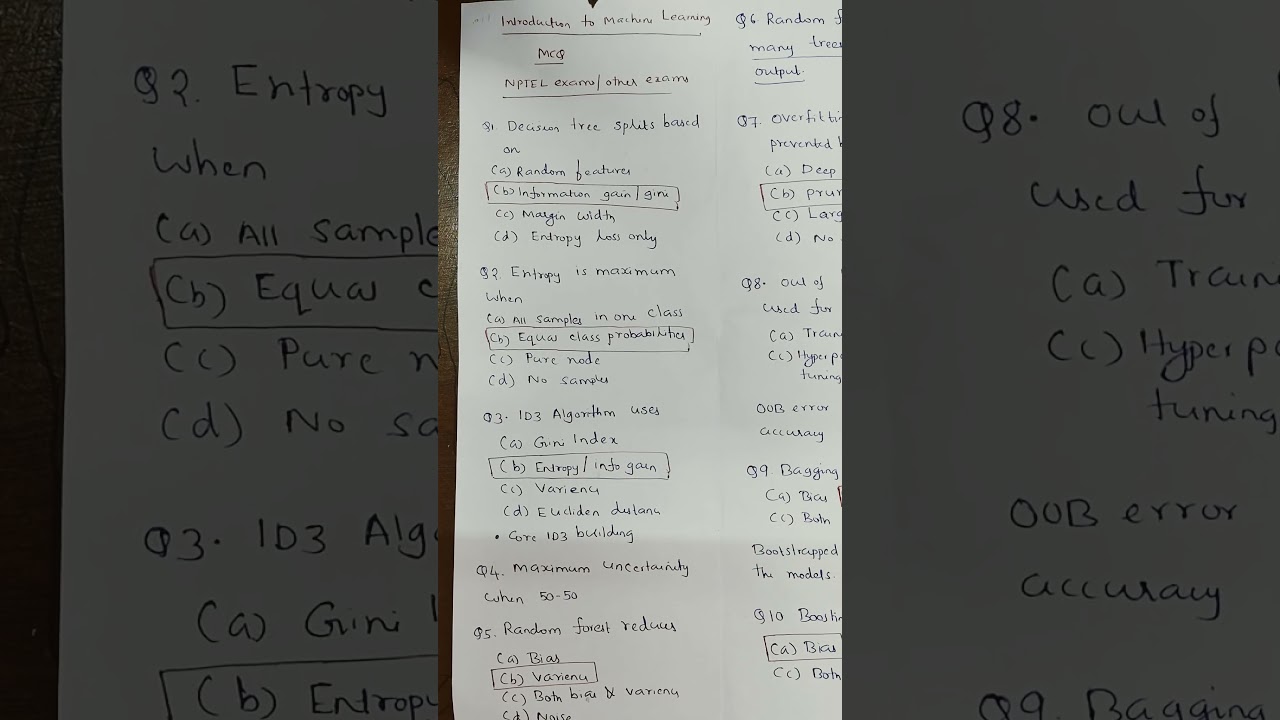 Introduction to Machine Learning
MCQ
NPTEL exams/other exams
Q1. Decision tree splits based
on
(a) Random features
(b) Information gain/gini
(c) Margin width
(d) Entropy loss only
Q2. Entropy is maximum
when
(a) All samples in one class
(b) Equal class probabilities
(c) Pure node
(d) No samples
Q3. ID3 Algorithm uses
(a) Gini Index
(b) Entropy/info gain
(c) Varienu
(d) Eucliden distanu
• Core ID3 building
Q4. Maximum uncertainity
when 50-50
Q5. Random forest reduces
(a) Bias
(b) Varienu
(c) Both bias & varienu
(d) Noise
Q6. Random f
many trees
output.
Q7. Overfittin
prevented b
(a) Deep
(b) prun
(c) Larg
(d) No
Q8. Out of
used for
(a) Train
(c) Hyperp
tuning
OOB error
accuracy
Q9. Bagging
(a) Bias
(c) Both
Bootstrapped
the models.
Q10 Boostin
(a) Bias
(c) Both
Q2. Entropy
when
(a) All sample
(b) Equal c
(c) Pure n
(d) No sa
Q3. ID3 Alg
(a) Gini I
(b) Entropy
Q8. Out of
used for
(a) Train
(c) Hyperp
tuning
OOB error
accuracy
Q9. Bagging